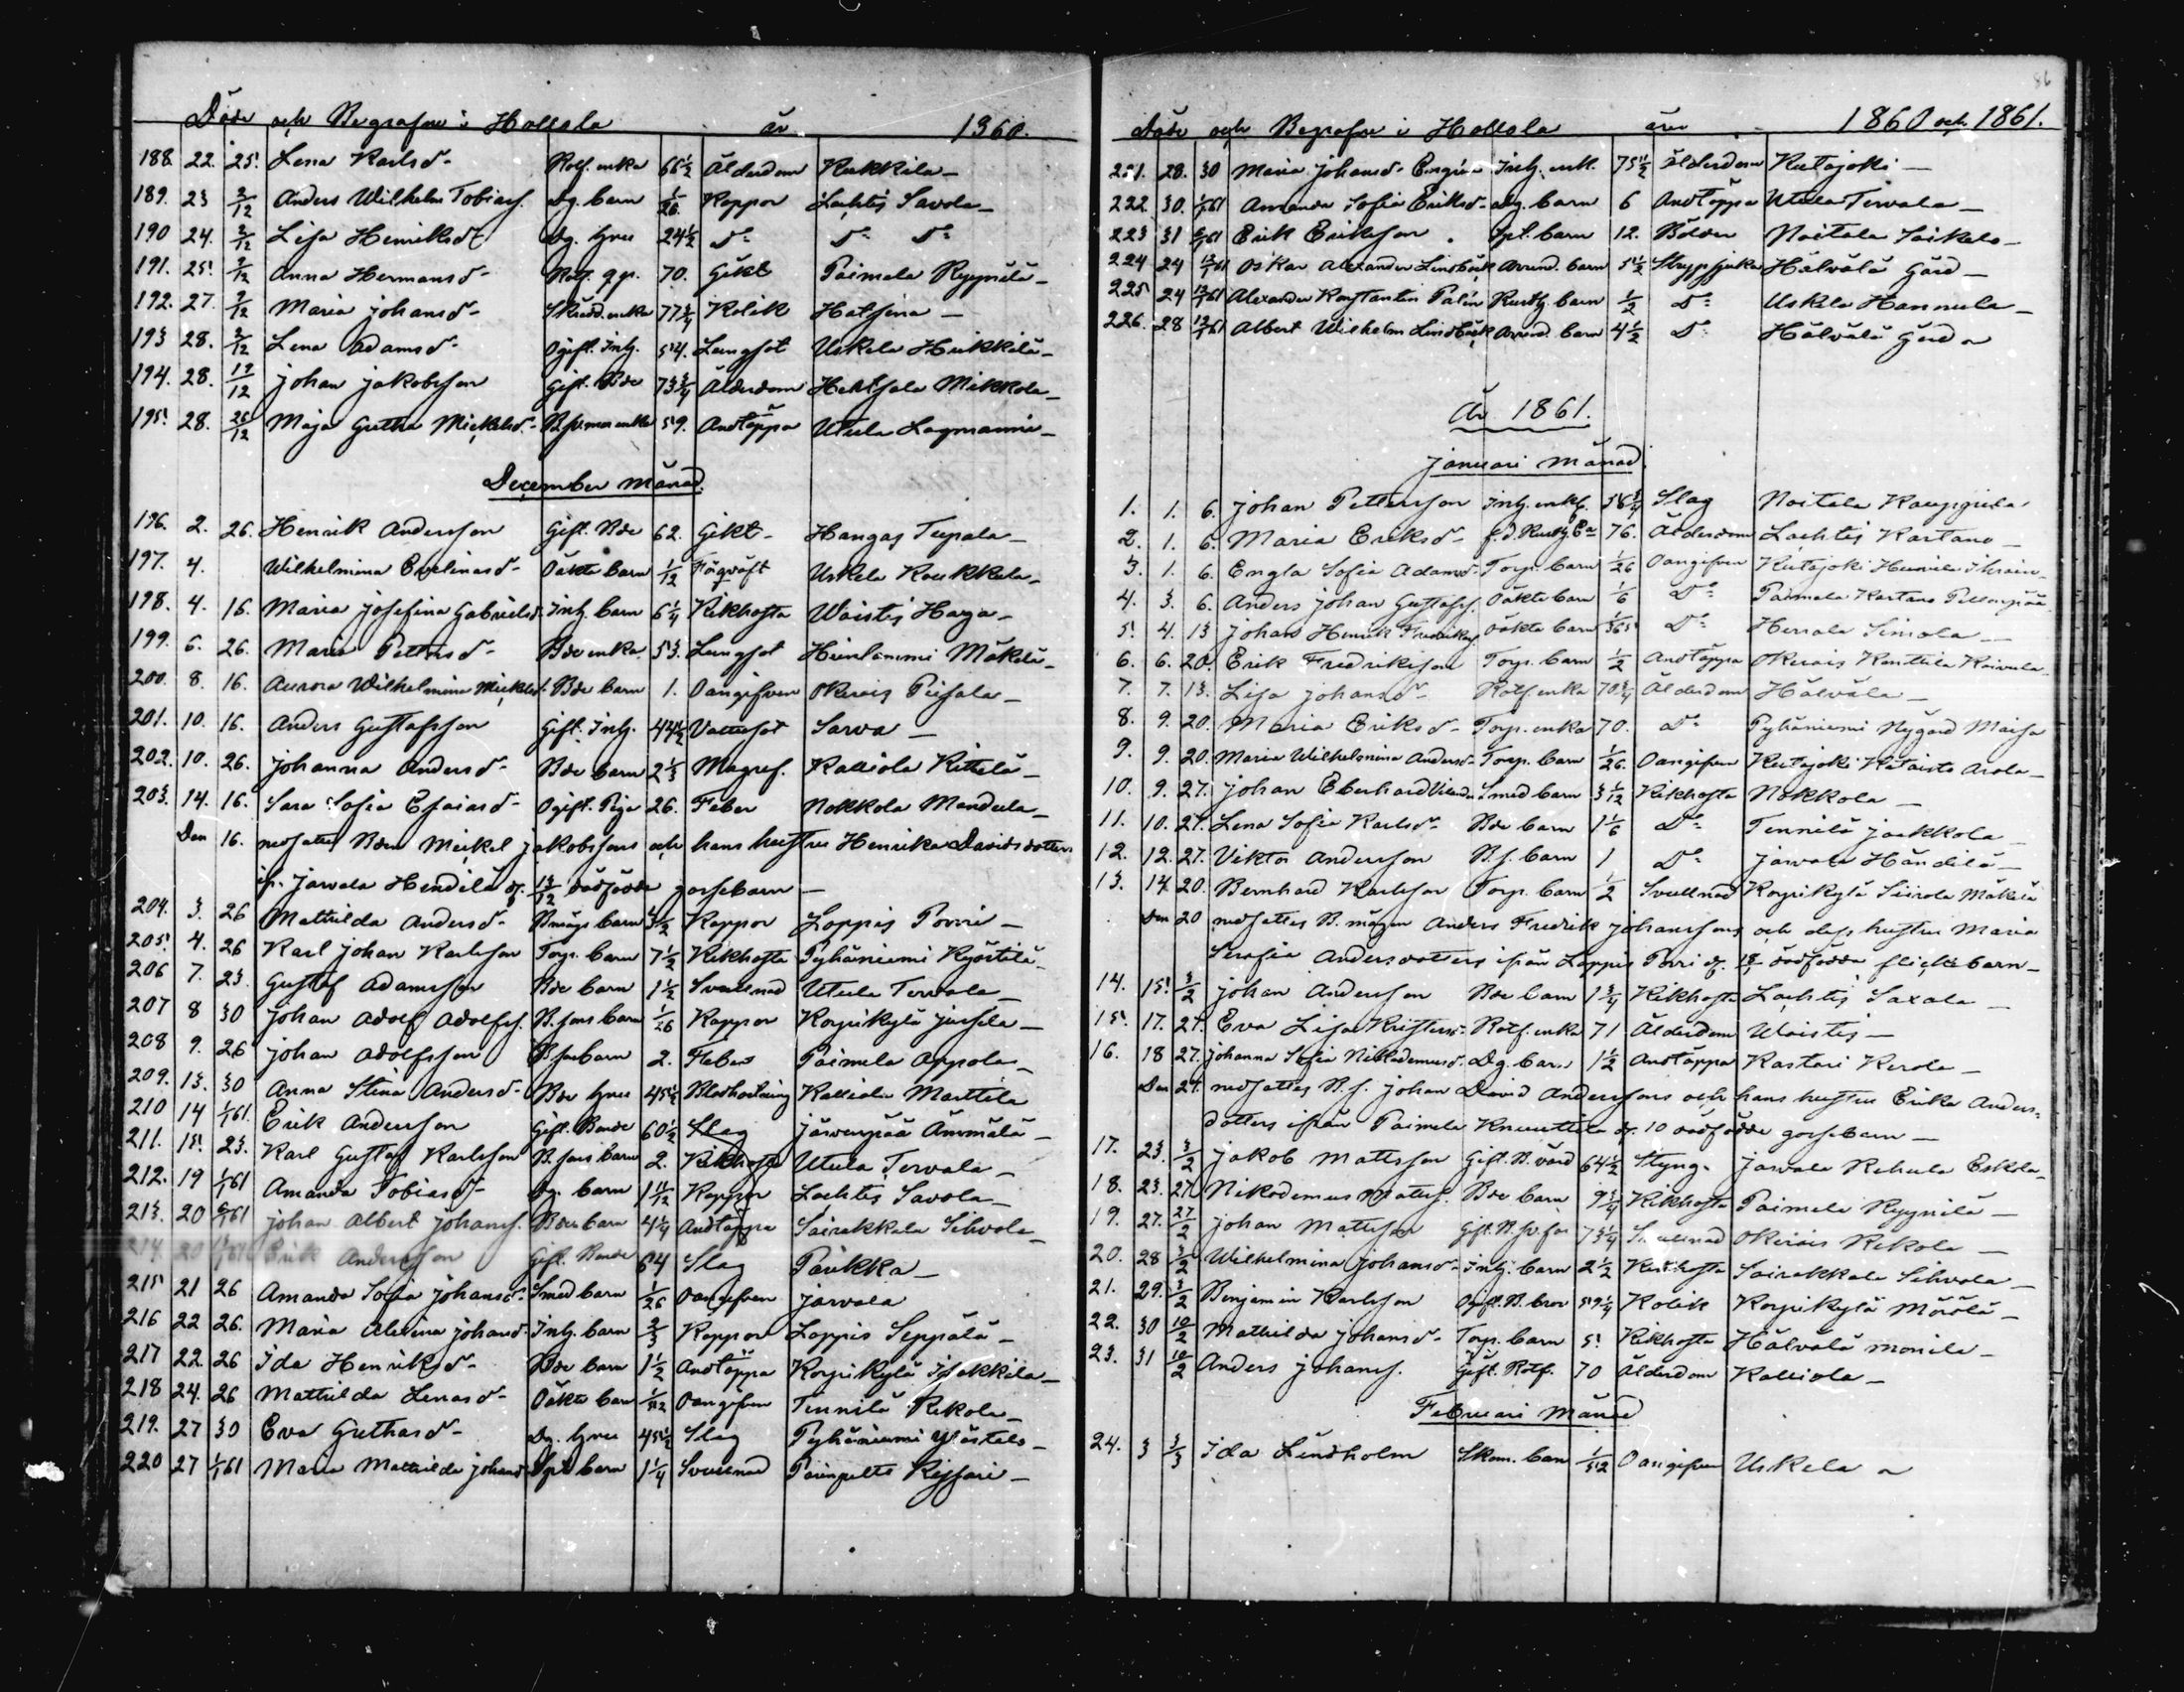 Döde och Begrafne i Hollola år 1860.
188. 22. 25. Lena Karlsd:r Rotf. enka 66 1/2 Ålderdom Kukkila –
189. 23 2/12 Anders Wilhelm Tobiass. Dg. barn 1/26 Koppor Lachtis Savola –
190 24. 2/12 Lisa Henriksd:r Dg. hru 24 1/2 D:o D:o D:o
191. 25. 2/12 Anna Hermansd:r 70. Gikt Paimela Ryynilä –
192. 27. 9/12 Maria Johansd:r Skrädd. enka 77 3/4 Kolik Hatsina –
193 28. 2/12 Lena Adamsd:r Ogift. Inh. 54. Lungsot Uskela Heikkilä –
194. 28. 19/12 Johan Jakobsson Gift. Bde 73 3/4 Ålderdom Hertsala Mikkola –
195. 28. 26/12 Maja Gretha Mickelsd:r enka 59. Andtäppa Utula Lagmanni –
December månad.
196. 2. 26. Henrik Andersson Gift. Bde 62. Gikt – Hangas Tupala –
197. 4. Wilhelmina Evelinasd:r Oäkta barn 1/12 Uskela Koukkula –
198. 4. 16. Maria Josefina Gabrielsd. Inh. barn 6 1/4 Kikhosta Waistis Haga –
199. 6. 26. Maria Pettersd:r Bde enka 53. Lungsot Heinlammi Mäkelä –
200. 8. 16. Aurora Wilhelmina Mickelsd. Bde barn 1. Oangifven Okerois Piisala –
201. 10. 16. Anders Gustafsson Gift. Inh. 44 1/2 Vattusot Sarva –
202. 10. 26. Johanna Andersd:r Bde barn 2 1/3 Magref. Kalliola Kittelä –
203. 14. 16. Sara Sofia Esaiasd:r Ogift. Piga 26. Feber Nokkola Mandula –
Den 16. nedsattes Bden Mickel Jakobssons och hans hustru Henrika Davidsdotters
ifr. Jarvala Hendilä d. 13/12 dödfödde gossebarn –
204. 3. 26 Mathilda Andersd:r Bmågs barn 3 1/2 Koppor Loppis Porri –
205. 4. 26 Karl Johan Karlsson Torp. barn 7 1/2 Kikhosta Pyhäniemi Kyöstilä –
206 7. 23. Gustaf Adamsson Bde barn 1 1/2 Svullnad Utula Tervala –
207 8 30 Johan Adolf Adolfss. B. sons barn 1/26 Koppor Korpikylä Jussila –
208 9. 26 Johan Adolfsson B. sons barn 2. Feber Paimela Appola –
209. 13. 30 Anna Stina Andersd:r Bde hru 45 1/2 Blodhostning Kalliola Marttila
210 14 1/1 61. Erik Andersson Gift. Bonde 60 1/2 Slag Järvenpää Ämmälä –
211. 15. 23. Karl Gustaf Karlsson B. sons barn 2. Kikhosta Utula Tervala –
212. 19 1/1 61 Amanda Tobiasd:r Dg. barn 1 11/12 Koppor Lachtis Savola –
213. 20 6/1 61 Johan Albert Johanss. Bde barn 4 1/4 Andtäppa Sairakkala Sihvola –
214. 20 Erik Andersson Gift. Bonde 64 Slag Paukka –
215 21 26 Amanda Sofia Johansd:r Smed barn 1/26 Oangifven Jarvala
216 22 26. Maria Alvina Johansd. Inh. barn 2/3 Koppor Loppis Seppälä –
217 22. 26 Ida Henriksd:r Bde barn 1 1/2 Andtäppa Korpikylä Isakkila –
218 24. 26 Mathilda Lenasd:r Oäkta barn 1/52 Oangifven Tennilä Rekola –
219. 27 30 Eva Grethasd:r Dg. hru 45 1/2 Slag Pyhäniemi
220 27 1/1 61 Maria Mathilda Johansd. barn 1 1/4 Svullnad Parinpelto Kissari –
86
Döde och Begrafne i Hollola åren 1860 och 1861.
221. 28. 30 Maria Johansd:r Inh. enk. 75 1/2 Ålderdom Kutajoki –
222 30. 1/1 61 Amanda Sofia Eriksd:r Dg. barn 6 Andtäppa Utula Tervala –
223 31 6/1 61 Erik Eriksson barn 12. Bölder Noitala Soikela –
224 24 13/1 61 Oskar Alexander Lindbäck Arrend. barn 5 1/2 Strypsjuka Hälvälä Gård –
225 24 13/1 61 Alexander Konstantin Palén Rusth. barn 1/2 D:o Uskila Hannula –
226. 28 13/1 61 Albert Wilhelm Lindbäck Arrend. barn 4 1/2 D:o Hälvälä Gård
År 1861.
Januari månad.
1. 1. 6. Johan Pettersson Inh. enkl. 56 3/4 Slag Noitala
2. 1. 6. Maria Eriksd:r f. d. Rusth. E:a 76. Ålderdom Lachtis Kartano –
3. 1. 6. Engla Sofia Adamsd:r Torp. barn 1/26 Oangifven Kutajoki
4. 3. 6. Anders Johan Gustafss. Oäkta barn 1/6 D:o Paimela Kartano
5. 4. 13 Johan Henrik Fredrikss. Oäkta barn 1/365 D:o Herrala Simola –
6. 6. 20. Erik Fredriksson Torp. barn 1/2 Andtäppa Okerois Kanttila Koivula
7. 7. 13. Lisa Johansd:r Rotf. enka 70 3/4 Ålderdom Hälvälä –
8. 9. 20. Maria Eriksd:r Torp. enka 70. D:o Pyhäniemi Nygård Maija
9. 9. 20. Maria Wilhelmina Andersd:r Torp. barn 1/26. Oangifven Kutajoki Kataisto Arola –
10. 9. 27. Johan Eberhard Smed barn 3 1/12 Kikhosta Nokkola –
11. 10. 27. Lena Sofia Karlsd:r Bde barn 1 1/6 D:o Tennilä Jaakkola
12. 12. 27. Viktor Andersson B. s. barn 1 D:o Jarvala Händilä –
13. 14. 20. Bernhard Karlsson Torp. barn 1/2 Svullnad Korpikylä Siirola Mäkelä
Den 20 nedsattes B. mågen Anders Fredrik Johanssons och dess hustru Maria
Serafia Andersdotters ifrån Loppis Porri dödfödda flickebarn –
14. 15. 3/2 Johan Andersson Bde barn 1 3/4 Kikhosta Lachtis Saxala –
15. 17. 27. Eva Lisa Kristersd:r Rotf. enka 71 Ålderdom Waistis –
16. 18 27. Johanna Sofia Nikodemusd. Dg. barn 1 1/2 Andtäppa Kastari Kerola –
Den 27. nedsattes B. s. Johan David Anderssons och hans hustru Erika Anders-
dotters ifrån Paimela Knuuttila d. 10 dödfödde gossebarn –
17. 23. 3/2 Jakob Mattsson Gift. B. värd 64 1/2 Styng. Jarvala Rekula Eskola –
18. 23. 27. Nikodemus Matss. Bde barn 9 3/4 Kikhosta Paimela Ryynilä –
19. 27. 27/2 Johan Mattsson 73 1/4 Svullnad Okerois Rekola –
20. 28 3/2 Wilhelmina Johansd:r Inh. barn 2 1/2 Kikhosta Sairakkala Sihvola –
21. 29. 3/2 Benjamin Karlsson Ogift. B. bror 59 1/4 Kolik Korpikylä Mörölä –
22. 30 10/2 Mathilda Johansd:r Torp. barn 5. Kikhosta Hälvälä Monila –
23. 31 10/2 Anders Johanss. Gift. Rotf. 70 Ålderdom Kalliola –
Februari Månad
24. 3 3/3 Ida Lindholm Skom. barn 1/52 Oangifven Uskela